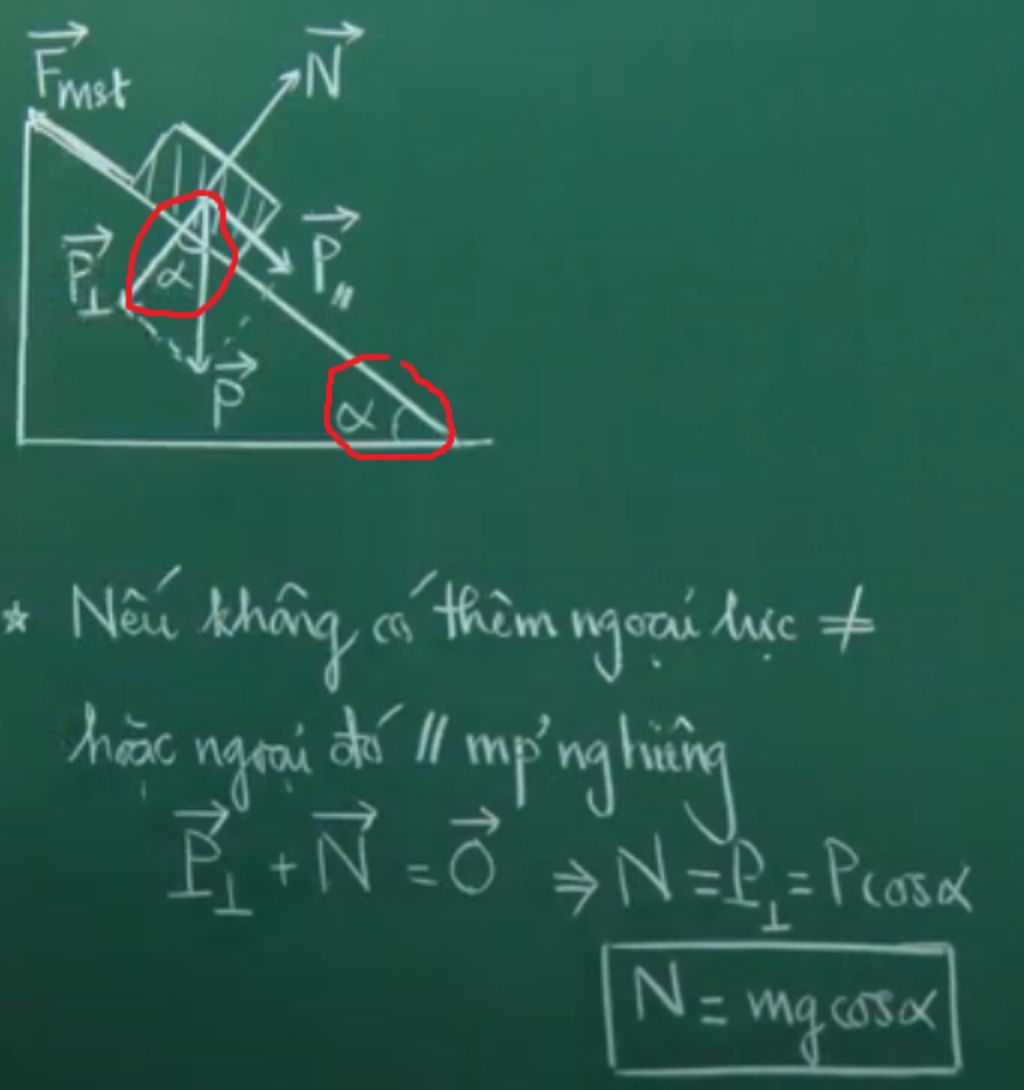 F⃗mst
N⃗
P⃗⊥
α
P⃗//
P⃗
α
* Nếu không có thêm ngoại lực ≠
hoặc ngoại đó // mp' nghiêng
P⃗⊥ + N⃗ = 0⃗ ⇒ N = P⊥ = Pcosα
N = mgcosα